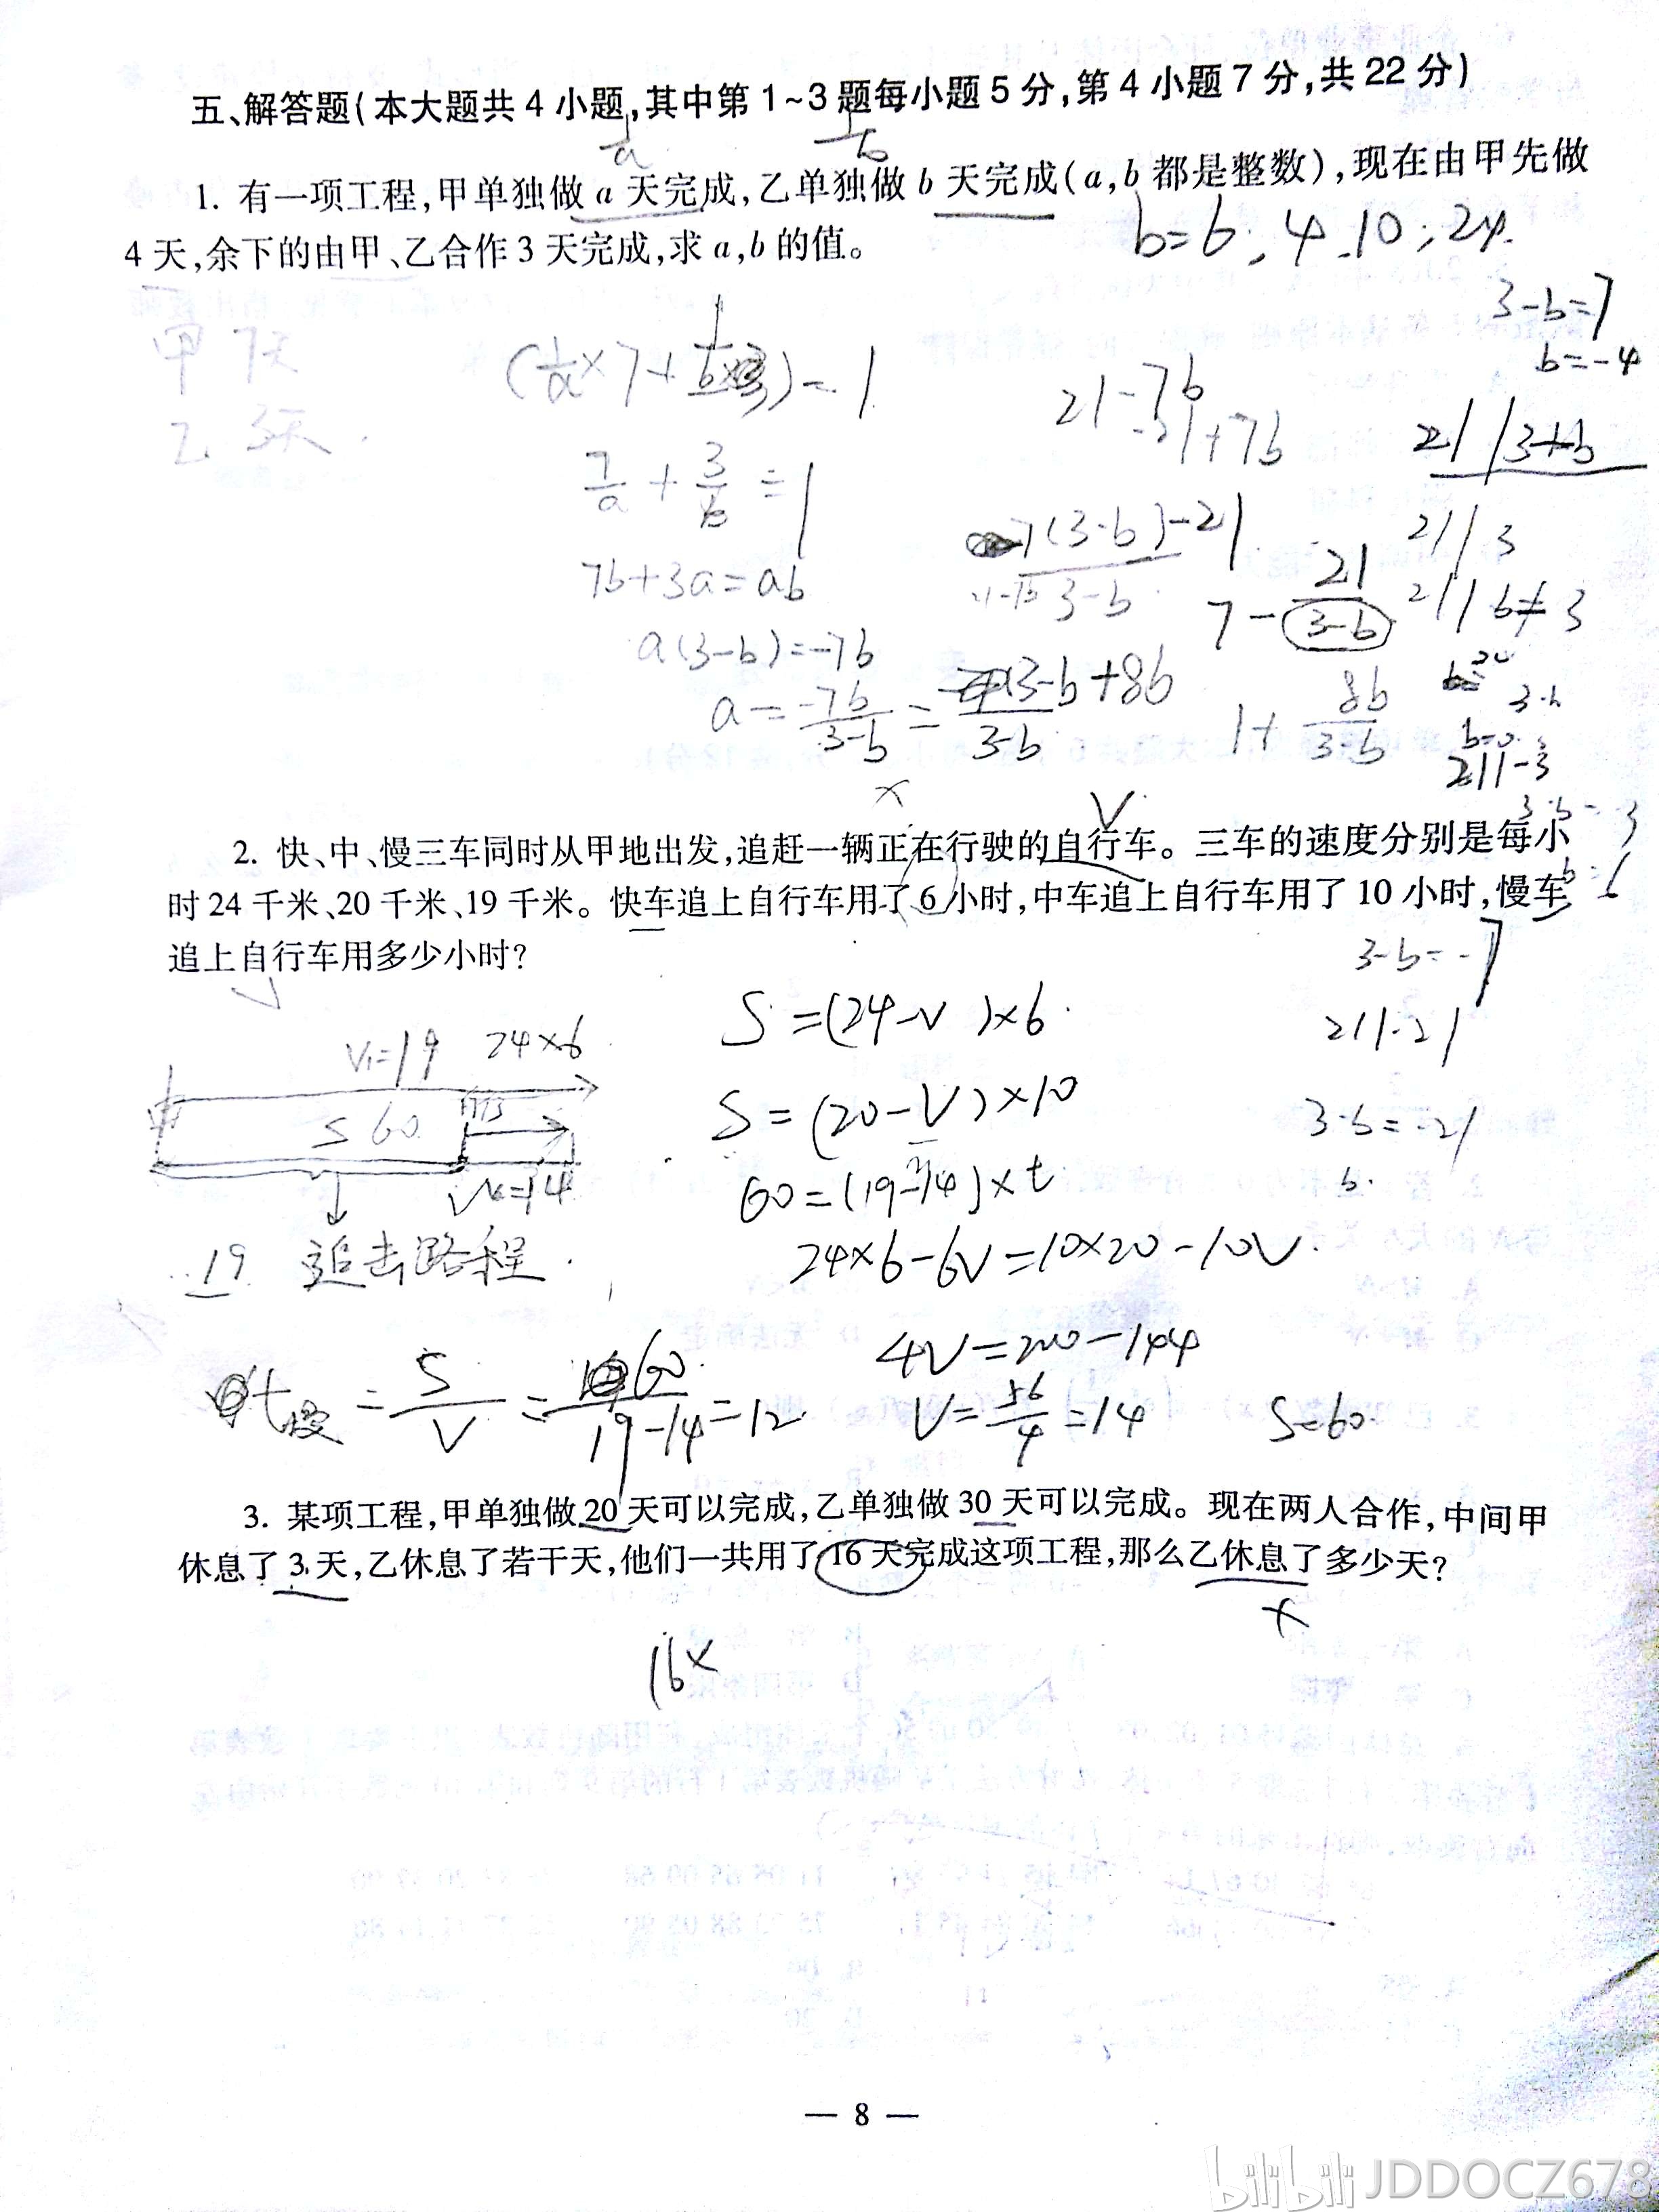 五、解答题(本大题共4小题,其中第1~3题每小题5分,第4小题7分,共22分)
1/a
1/b
1. 有一项工程,甲单独做 a 天完成,乙单独做 b 天完成(a,b 都是整数),现在由甲先做
4 天,余下的由甲、乙合作 3 天完成,求 a,b 的值。
b=6, 4, 10, 24.
3-b=7
b=-4
甲 7天
乙 3天
(1/a×7+1/b×3)=1
7/a+3/b=1
7b+3a=ab
a(3-b)=-7b
a=-7b/3-b=3-b+8b/3-b
1+8b/3-b
21-7b
-21+7b
7(3-b)-21/3-b
21-7b
7-21/3-b
21/3-b
21/3
21/b≠3
3-b
b=0
21/-3
3-b=-3
b=6
2. 快、中、慢三车同时从甲地出发,追赶一辆正在行驶的自行车。三车的速度分别是每小
时 24 千米、20 千米、19 千米。快车追上自行车用了 6 小时,中车追上自行车用了 10 小时,慢车
追上自行车用多少小时?
3-b=-7
21/-21
3-b=-21
b
V₁=19 24×6
S 60
V=14
19 追击路程
S=(24-V)×6
S=(20-V)×10
60=(19-14)×t
24×6-6V=10×20-10V
4V=200-144
V=56/4=14 S=60
t慢=S/V=60/19-14=12
3. 某项工程,甲单独做 20 天可以完成,乙单独做 30 天可以完成。现在两人合作,中间甲
休息了 3 天,乙休息了若干天,他们一共用了 16 天完成这项工程,那么乙休息了多少天?
x
16×
— 8 —
bilibili JDDOCZ678